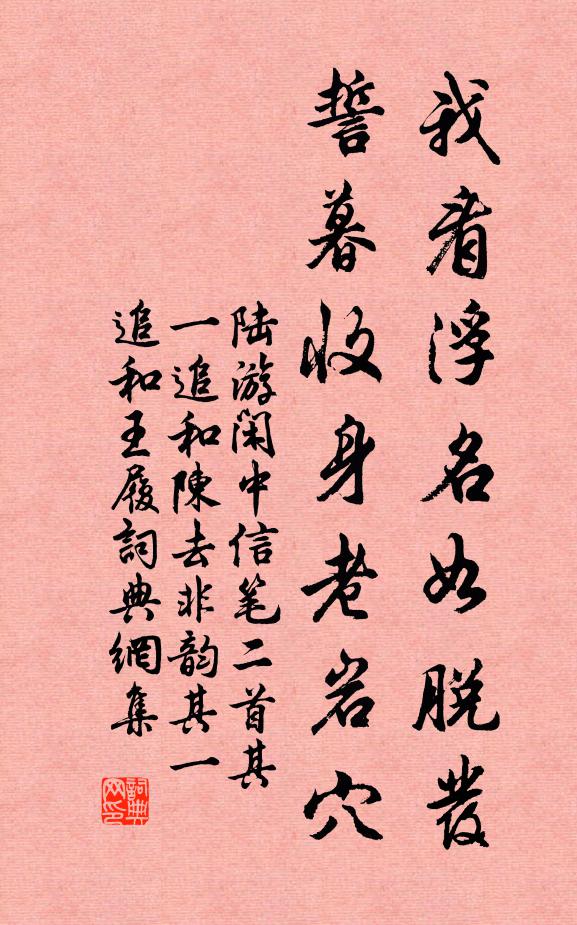 我看浮名如脱發
誓暮收身老岩穴
陆游闲中信笔二首其
一追和陳去非韵其一
追和王履詞典網集
詞典网印